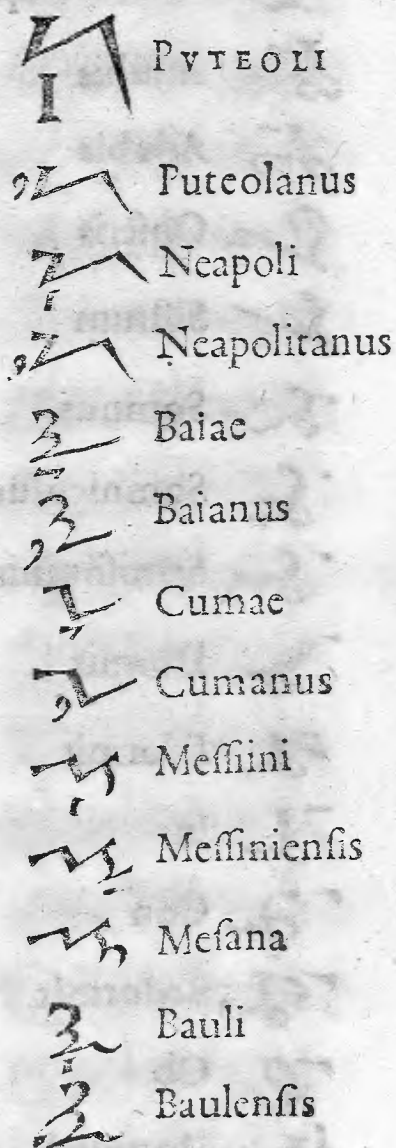 PVTEOLI
Puteolanus
Neapoli
Neapolitanus
Baiae
Baianus
Cumae
Cumanus
Meſſiini
Meſſinienſis
Meſana
Bauli
Baulenſis